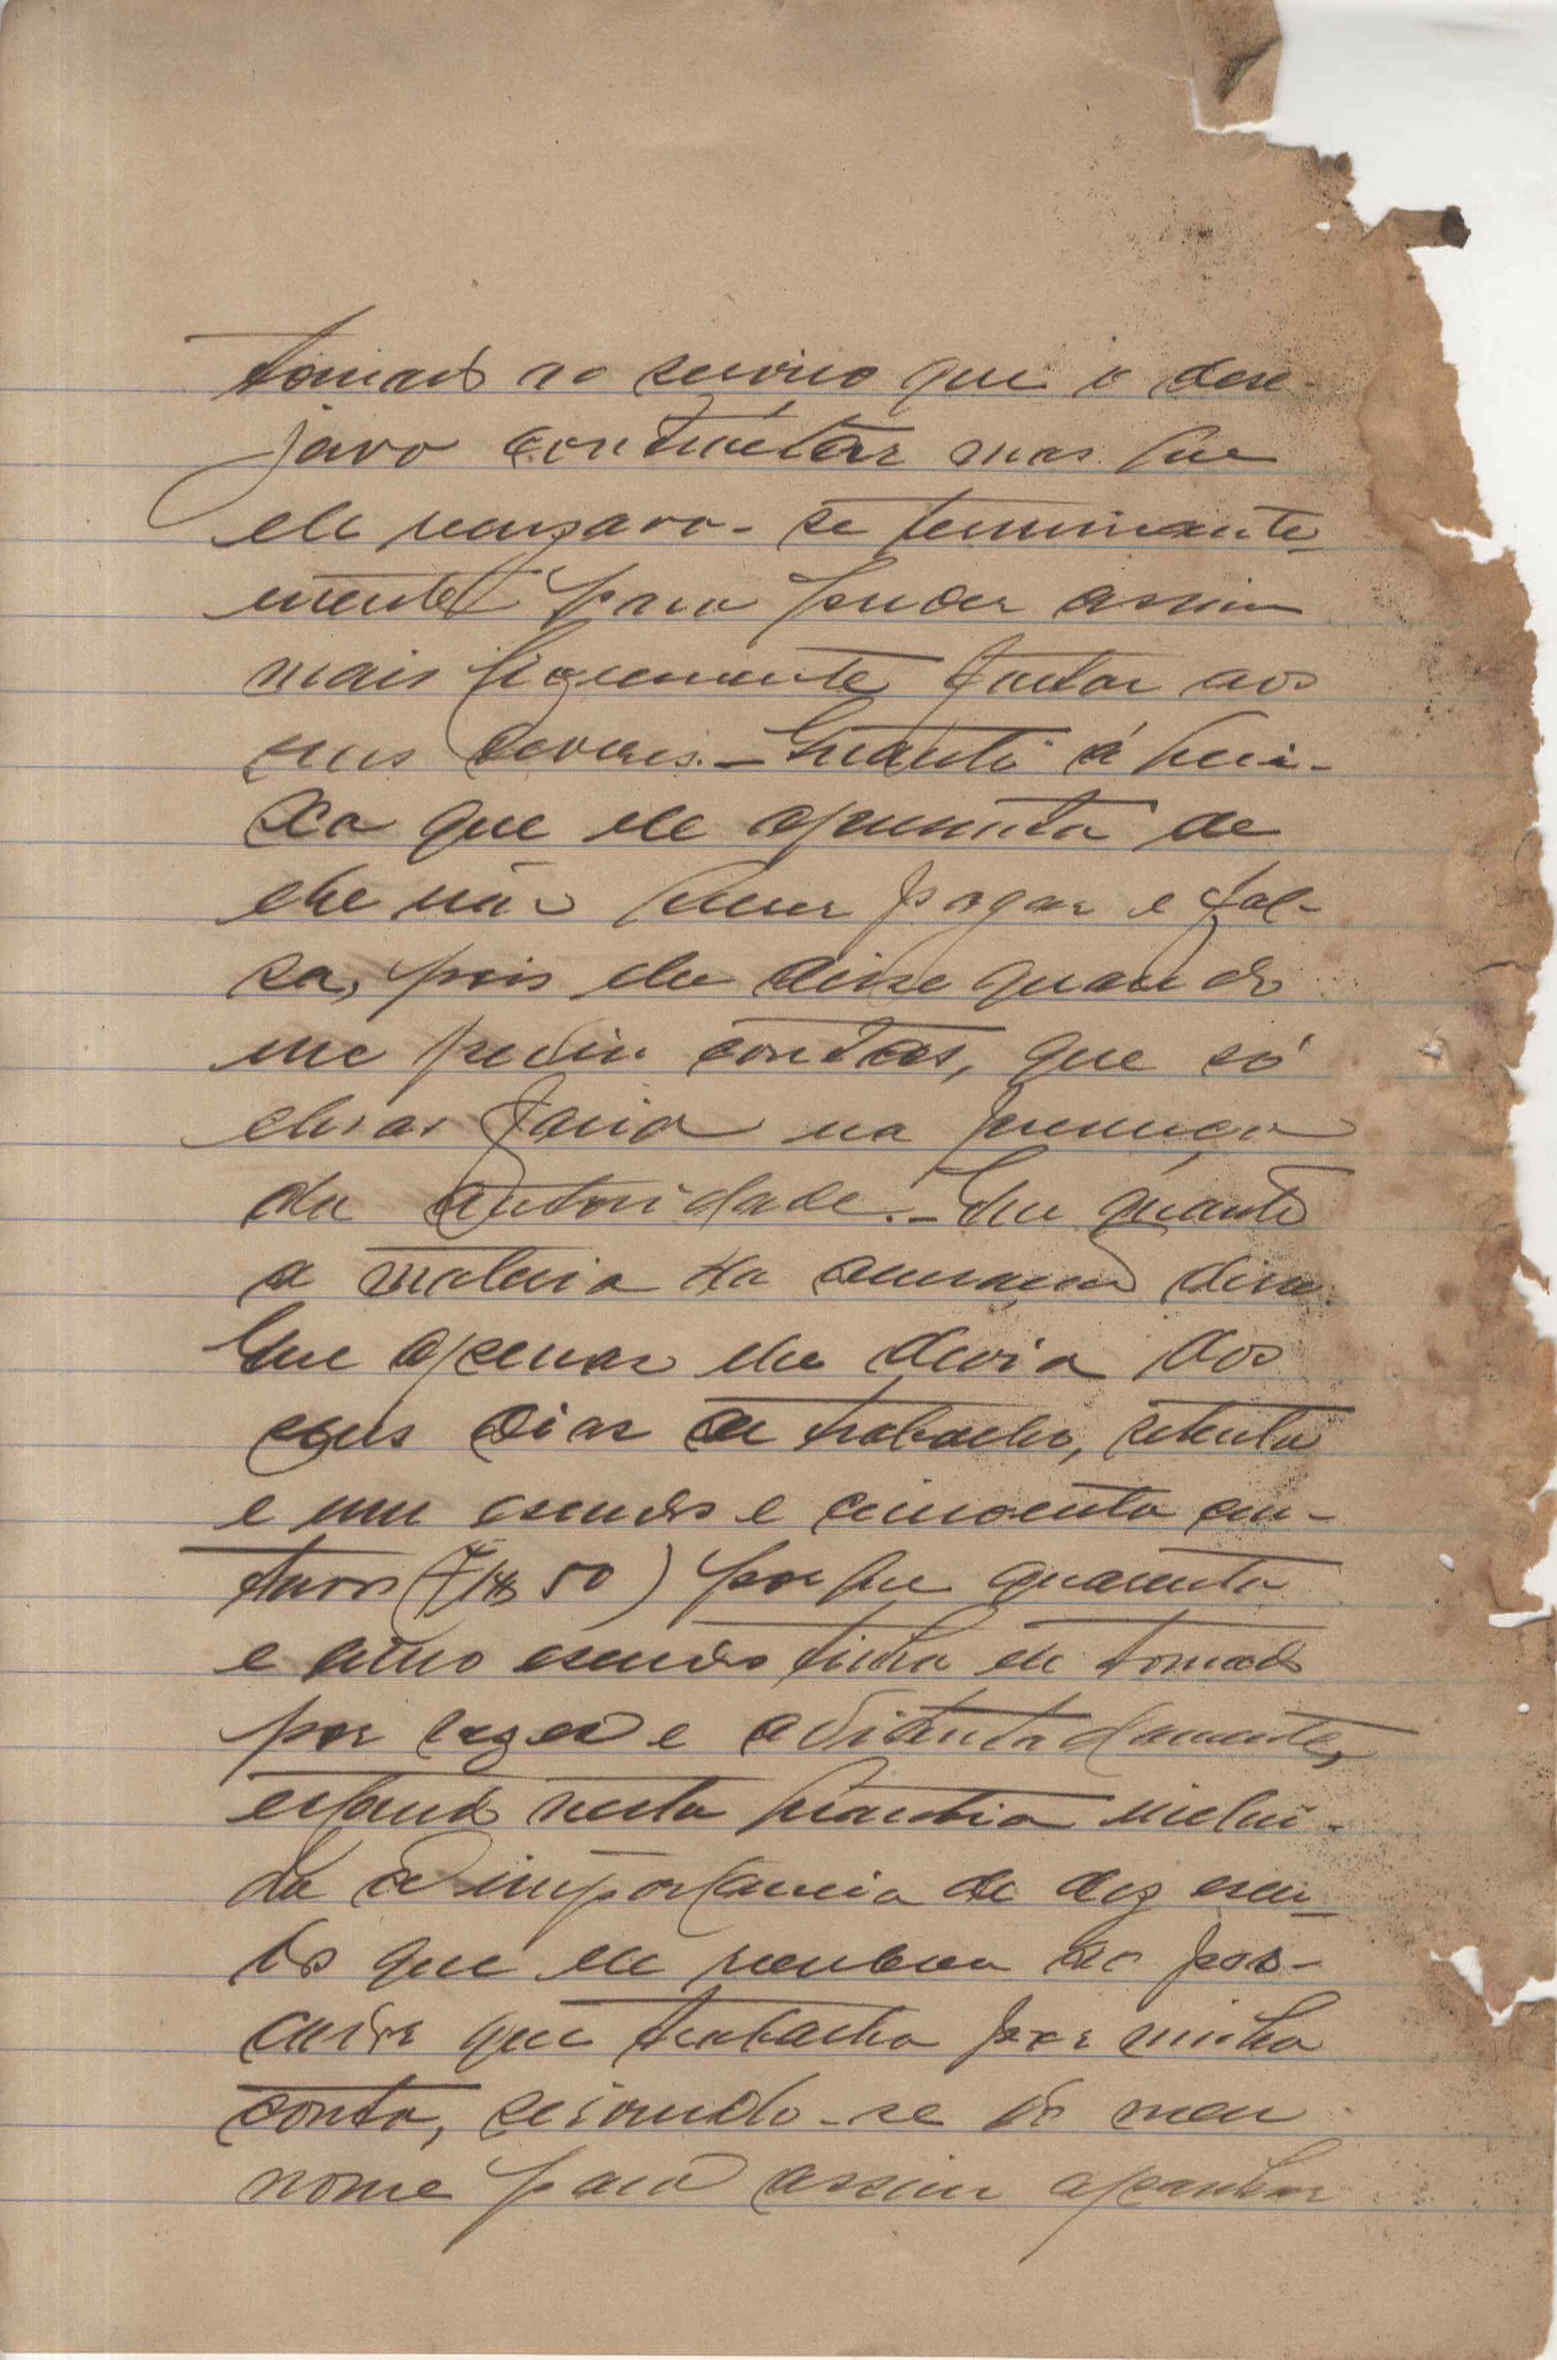 tomado ao serviço que o dese-
java contractar mas que
ele recusara-se terminante-
mente para puder assim
mais ligeiramente faltar aos
seus deveres. - Quanto á quei-
xa que ele apresenta de
lhe não querer pagar e fal-
sa, pois lhe disse quando
me pediu contas, que só
lhas faria na presença
da autoridade. - Em quanto
a materia da accusação disse
que apenas lhe devia dos
seus dias de trabalho, setenta
e um escudos e cincoenta cen-
tavos (71$50) por que quarenta
e cinco escudos tinha ele tomado
por vezes e adiantadamente,
estando nesta quantia inclui-
da a importancia de dez escu-
dos que ele recebeu do pes-
cador que trabalha por minha
conta, servindo-se do meu
nome para assim apanhar